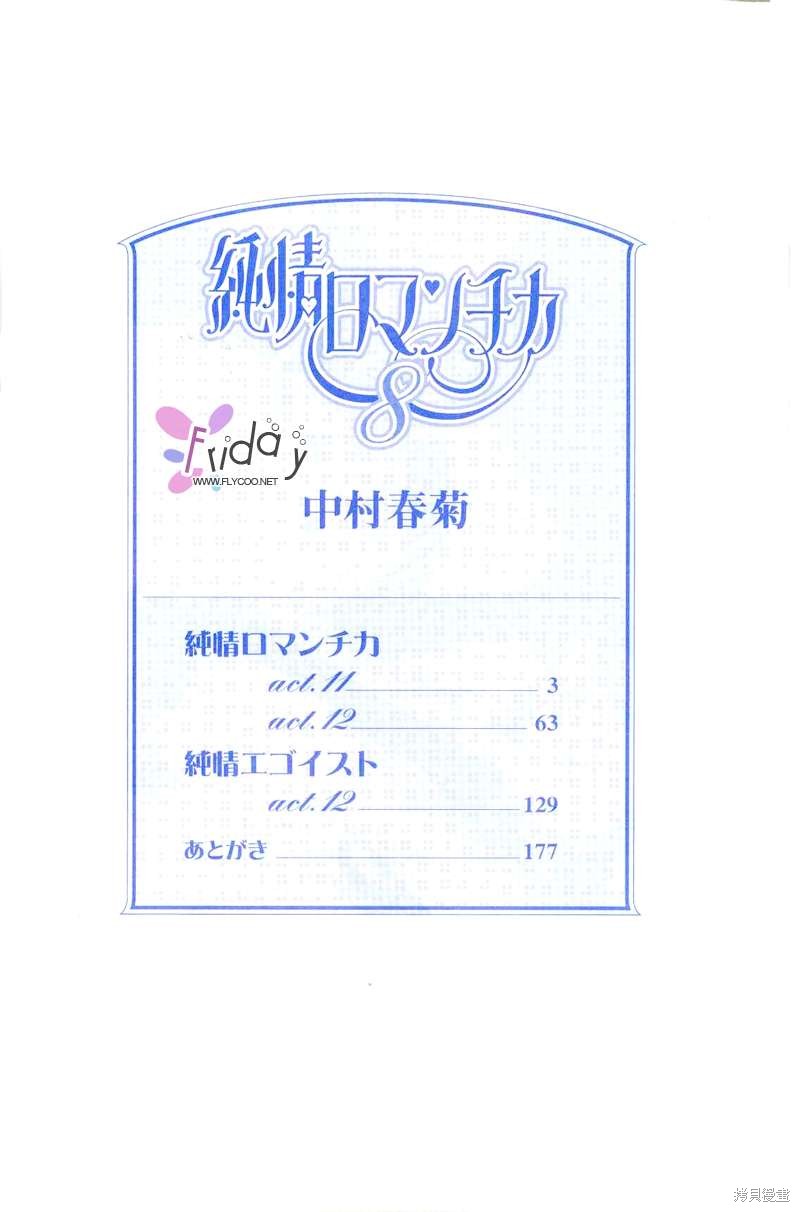 純情ロマンチカ
8
Friday
WWW.FLYCOO.NET
中村春菊
純情ロマンチカ
act.11 3
act.12 63
純情エゴイスト
act.12 129
あとがき 177
拷貝漫畫